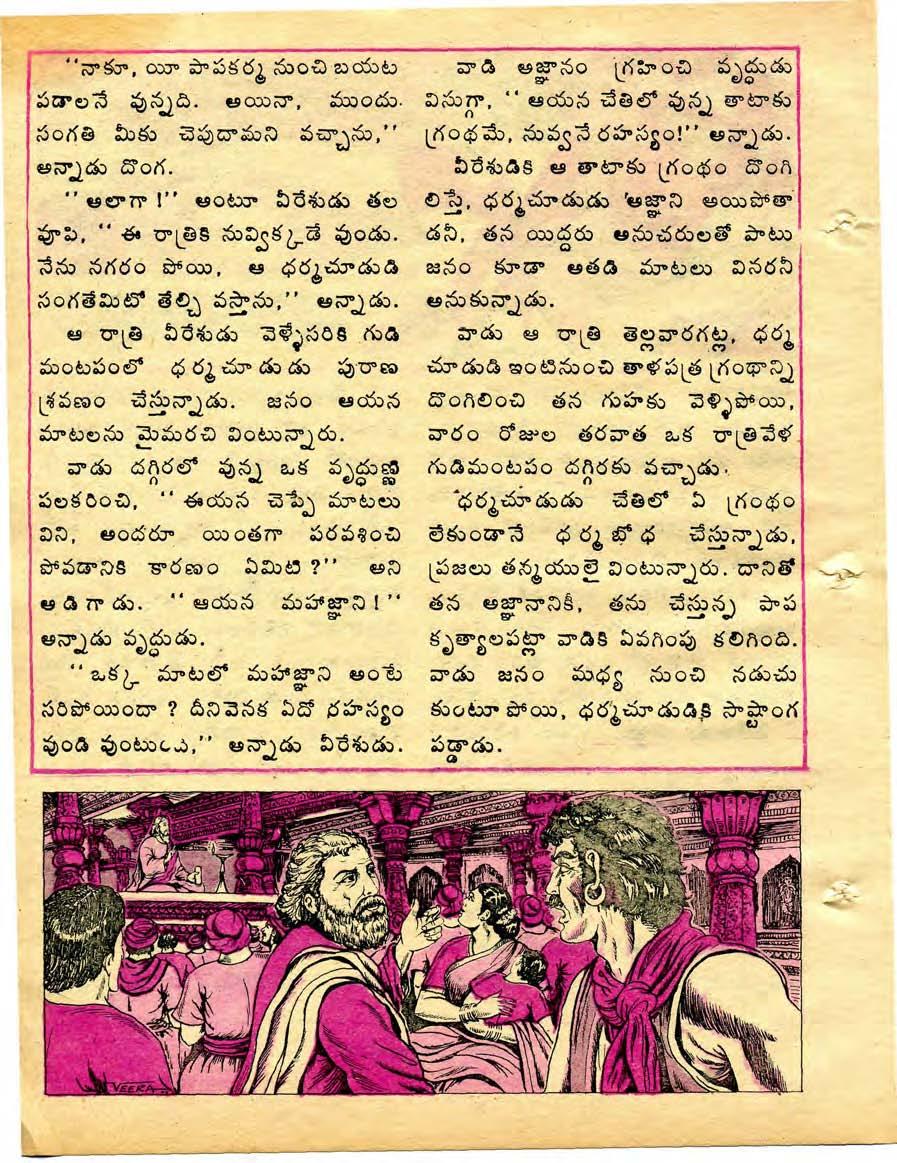 “నాకూ, యీ పాపకర్మ నుంచి బయట
పడాలనే వున్నది. అయినా, ముందు.
సంగతి మీకు చెపుదామని వచ్చాను,’’
అన్నాడు దొంగ.
“అలాగా !’’ అంటూ వీరేశుడు తల
వూపి, “ ఈ రాత్రికి నువ్విక్కడే వుండు.
నేను నగరం పోయి, ఆ ధర్మచూడుడి
సంగతేమిటో తేల్చి వస్తాను,’’ అన్నాడు.
ఆ రాత్రి వీరేశుడు వెళ్ళేసరికి గుడి
మంటపంలో ధర్మచూడుడు పురాణ
శ్రవణం చేస్తున్నాడు. జనం ఆయన
మాటలను మైమరచి వింటున్నారు.
వాడు దగ్గిరలో వున్న ఒక వృద్ధుణ్ణి
పలకరించి, “ ఈయన చెప్పే మాటలు
విని, అందరూ యింతగా పరవశించి
పోవడానికి కారణం ఏమిటి ?’’ అని
అడిగాడు. “ఆయన మహాజ్ఞాని !’’
అన్నాడు వృద్ధుడు.
“ఒక్క మాటలో మహాజ్ఞాని అంటే
సరిపోయిందా ? దీనివెనక ఏదో రహస్యం
వుండి వుంటుంది,’’ అన్నాడు వీరేశుడు.
వాడి అజ్ఞానం గ్రహించి వృద్ధుడు
విసుగ్గా, “ ఆయన చేతిలో వున్న తాటాకు
గ్రంథమే, నువ్వనే రహస్యం!’’ అన్నాడు.
వీరేశుడికి ఆ తాటాకు గ్రంథం దొంగి
లిస్తే, ధర్మచూడుడు 'అజ్ఞాని అయిపోతా
డనీ, తన యిద్దరు అనుచరులతో పాటు
జనం కూడా అతడి మాటలు వినరనీ
అనుకున్నాడు.
వాడు ఆ రాత్రి తెల్లవారగట్ల, ధర్మ
చూడుడి ఇంటినుంచి తాళపత్ర గ్రంథాన్ని
దొంగిలించి తన గుహకు వెళ్ళిపోయి,
వారం రోజుల తరవాత ఒక రాత్రివేళ
గుడిమంటపం దగ్గిరకు వచ్చాడు.
ధర్మచూడుడు చేతిలో ఏ గ్రంథం
లేకుండానే ధర్మబోధ చేస్తున్నాడు,
ప్రజలు తన్మయులై వింటున్నారు. దానితో
తన అజ్ఞానానికీ, తను చేస్తున్న పాప
కృత్యాలపట్లా వాడికి ఏవగింపు కలిగింది.
వాడు జనం మధ్య నుంచి నడుచు
కుంటూ పోయి, ధర్మచూడుడికి సాష్టాంగ
పడ్డాడు.
VEERA